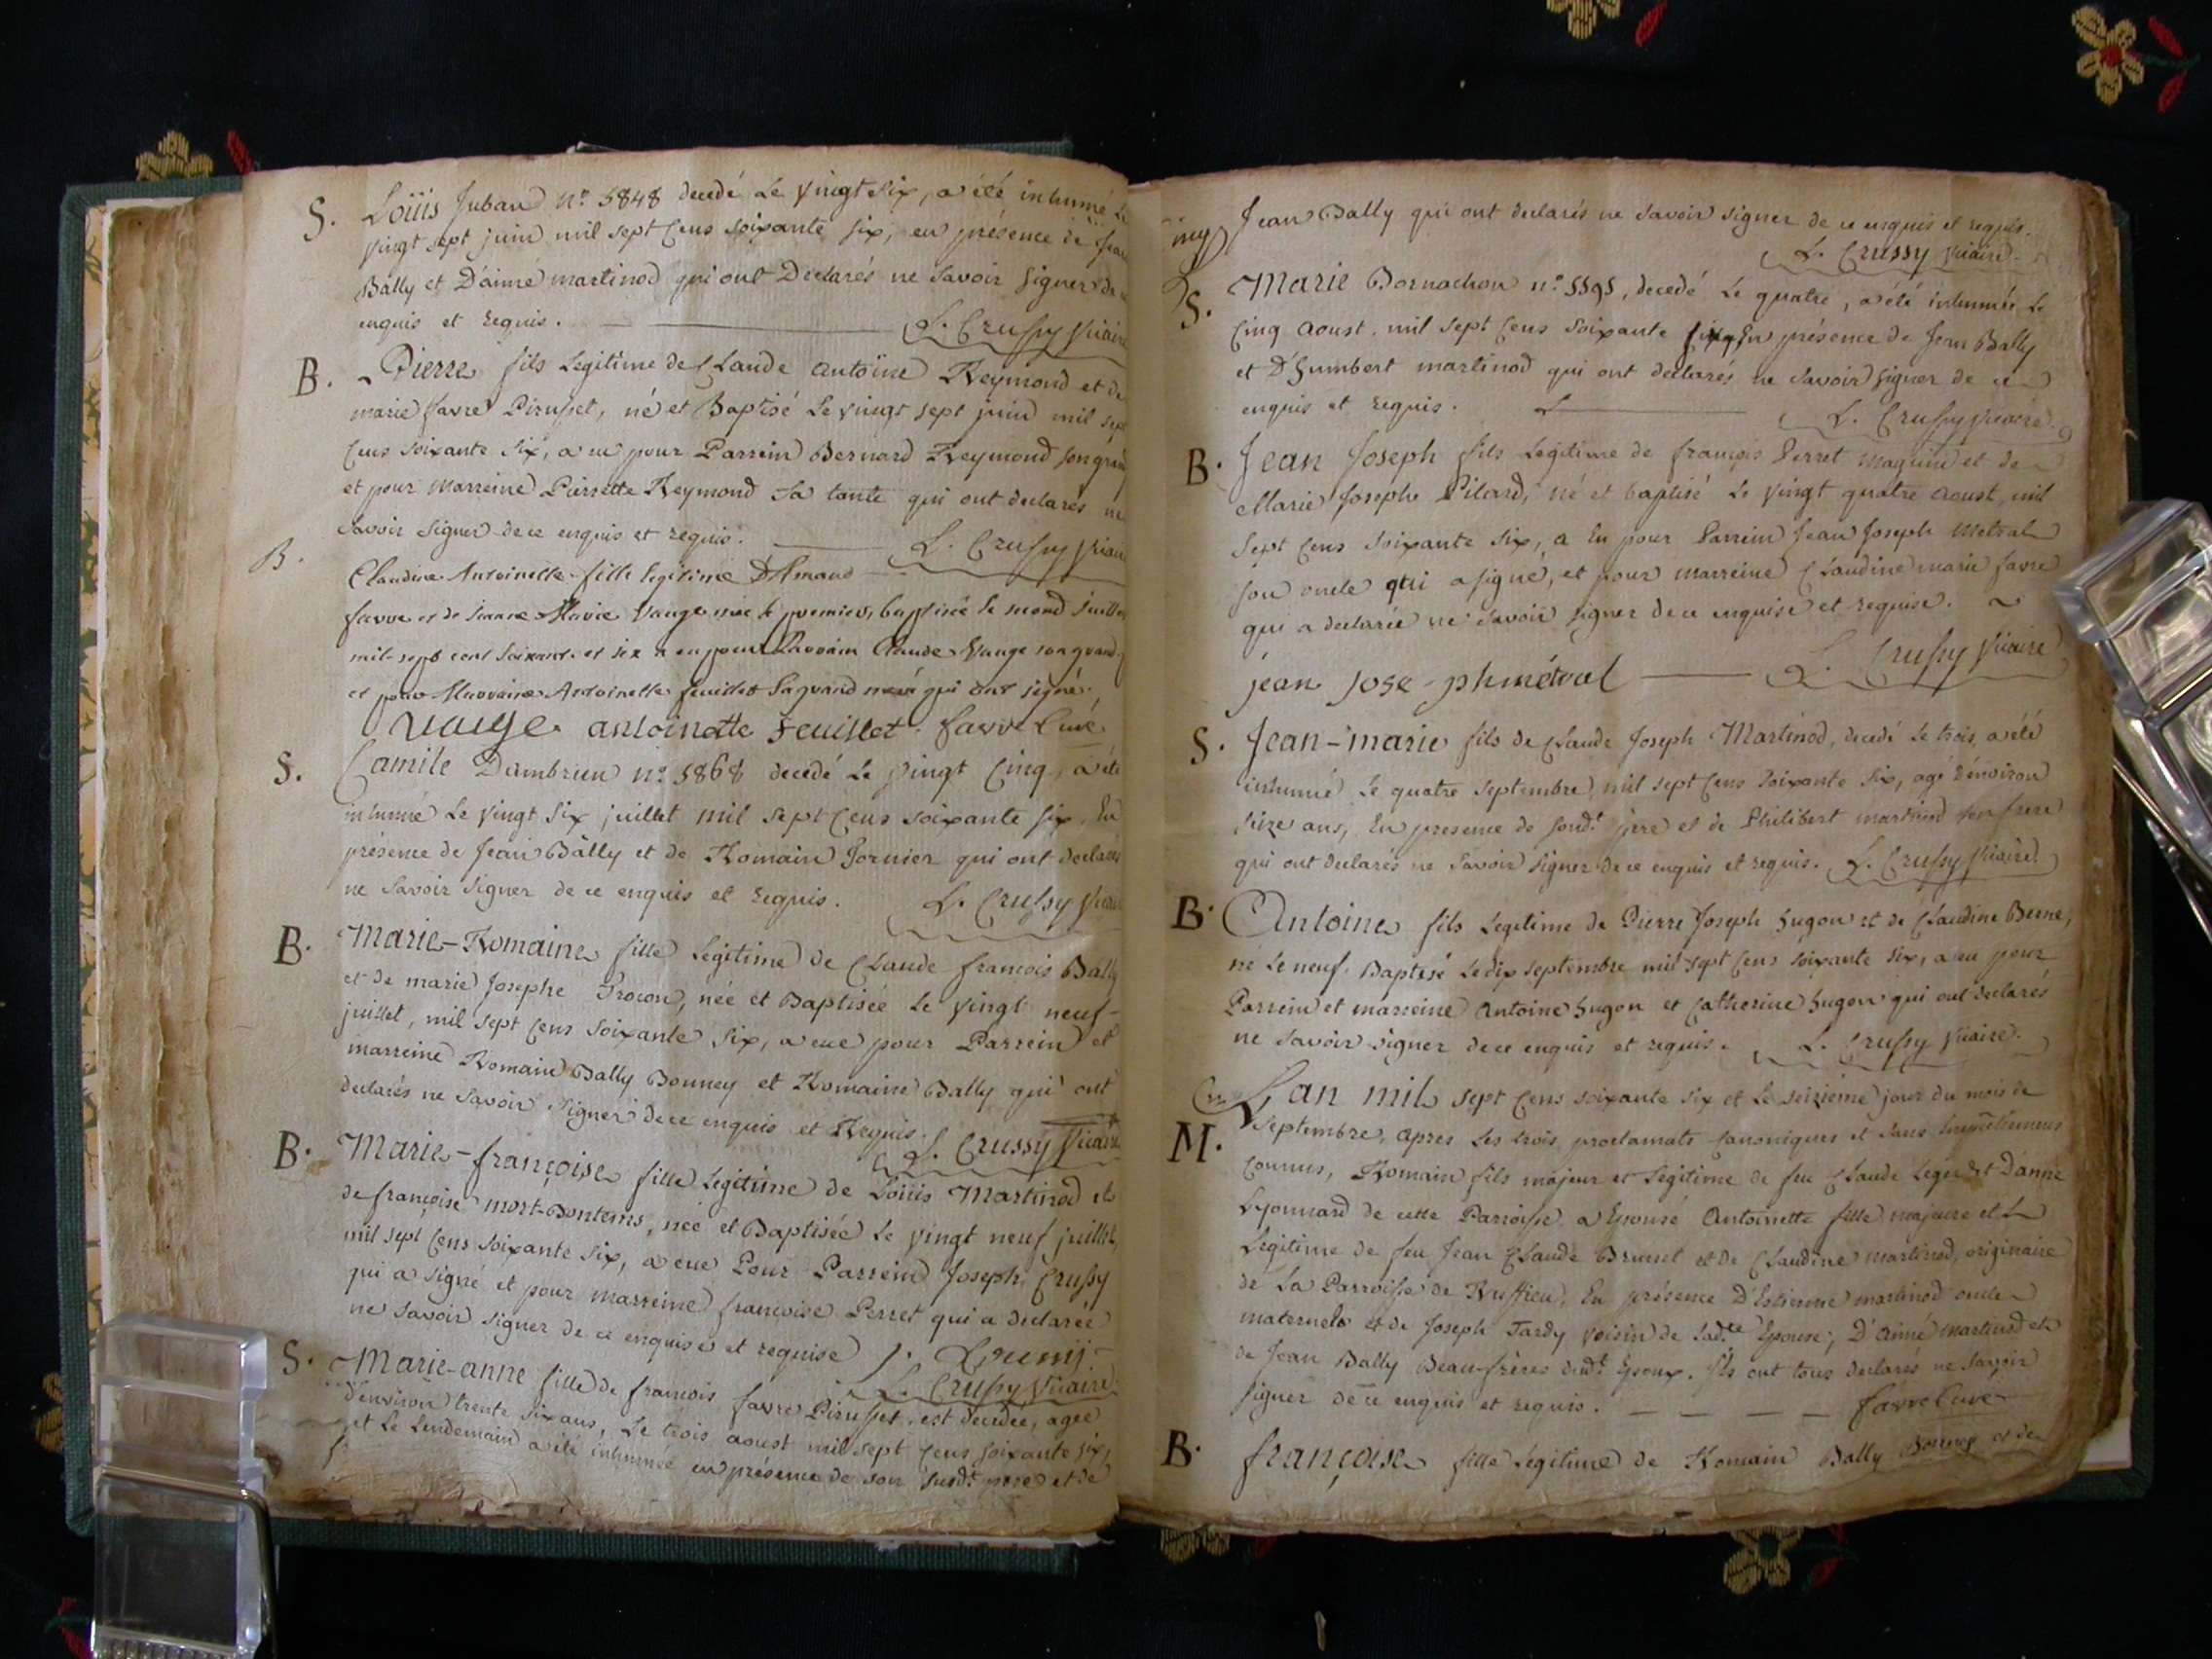 S. Loüis Juban n.o 5848 decedé Le vingt Six, a été inhumé Le
vingt sept juin mil sept Cens Soixante Six, en présence de Jean
Bally et D'aimé martinod qui ont Declarés ne Savoir Signer de ce
enquis et requis. L. Crussy Vicaire
B. Pierre fils Legitime de Claude Antoine Reymond et de
marie favre Pirusset, né et Baptisé Le vingt sept juin mil sept
Cens Soixante Six, a eu pour Parrein Bernard Reymond son grand
et pour Marreine Pierrette Reymond Sa tante qui ont declarés ne
Savoir Signer de ce enquis et requis. L. Crussy Vicaire
B. Claudine Antoinette fille legitime D'Amand
favre et de jeanne Marie Vauge née le premier, baptisée le second juillet
mil-sept cent Soixante et six a eu pour Parrain Claude Vauge son grand
et pour Marraine Antoinette feuillet Sa grand meré qui ont signé.
Vauge antoinette feuillet favre Curé
S. Camile Dumbrun n.o 5868 decedé Le vingt Cinq, a été
inhumé Le vingt Six juillet mil Sept Cens soixante Six, En
présence de Jean Bâlly et de Romain Jornier qui ont declarés
ne Savoir Signer de ce enquis et requis. L. Crussy Vicaire
B. Marie-Romaine fille Légitime de Claude françois Bally
et de marie Josephe Procon, née et Baptisée Le vingt neuf
juillet, mil sept Cens Soixante Six, a eue pour Parrein et
marreine Romain Bally Bonney et Romaine Bally qui ont
declarés ne Savoir Signer de ce enquis et Requis. L. Crussy Vicaire
B. Marie-françoise fille Legitime de Loüis Martinod et
de françoise mort-Bontems, née et Baptisée Le vingt neuf juillet,
mil sept Cens Soixante Six, a eue Pour Parrein Joseph Crussy
qui a signé et pour marreine françoise Perret qui a declarée
ne Savoir Signer de ce enquise et requise
L. Crussy Vicaire
S. Marie-anne fille de françois favre Pirusset, est decedée, agée
d'environ trente Six ans, Le trois aoust mil sept Cens soixante six,
et Le Lendemain a été inhumée en présence de son susd.t pere et de
Jean Bally qui ont declarés ne Savoir Signer de ce enquis et requis.
L. Crussy Vicaire.
S. Marie Bornachon n.o 5595, decedé Le quatre, a été inhumée Le
Cinq Aoust, mil Sept Cens Soixante Six, En présence de Jean Bally
et D'humbert martinod qui ont declarés ne Savoir Signer de ce
enquis et requis. L. Crussy Vicaire.
B. Jean Joseph fils Legitime de françois Perret Maguin et de
Marie Josephe Pilard, né et baptisé Le vingt quatre Aoust, mil
Sept Cens Soixante Six, a Eu pour Parrein Jean Joseph Metral
son oncle qui a signé, et pour marreine Claudine marie favre
qui a declarée ne Savoir Signer de ce enquise et requise.
jean jose-ph métral L. Crussy Vicaire
S. Jean-marie fils de Claude Joseph Martinod, decedé Le trois, a été
inhumé Le quatre Septembre, mil sept Cens Soixante Six, agé d'environ
seize ans, En presence de sond.t pere et de Philibert martinod son frere
qui ont declarés ne Savoir Signer de ce enquis et requis. L. Crussy Vicaire
B. Antoine fils Legitime de Pierre Joseph hugon et de Claudine Berne,
né Le neuf, Baptisé Le dix Septembre mil sept Cens soixante Six, a eu pour
Parrein et marreine Antoine hugon et Catherine hugon qui ont declarés
ne Savoir Signer de ce enquis et requis. L. Crussy Vicaire.
M. L'an mil sept Cens soixante six et Le seizième jour du mois de
Septembre, apres Les trois proclamats Canoniques et sans
Connus, Romain fils majeur et Légitime de feu Claude Leger et D'anne
Lyonnard de cette Parroisse a Epousé Antoinette fille majeure et
Legitime de feu Jean Claude Brunet et de Claudine martinod, originaire
de La Parroisse de Ruffieu, En présence D'Estienne martinod oncle
maternel et de Joseph Tardy voisin de Lad.te Epouse; D'Aimé Martinod et
de Jean Bally Beau-frères dud.t Epoux. Ils ont tous declarés ne Savoir
Signer de ce enquis et requis. favre Curé
B. françoise fille Légitime de Romain Bally Bonney et de